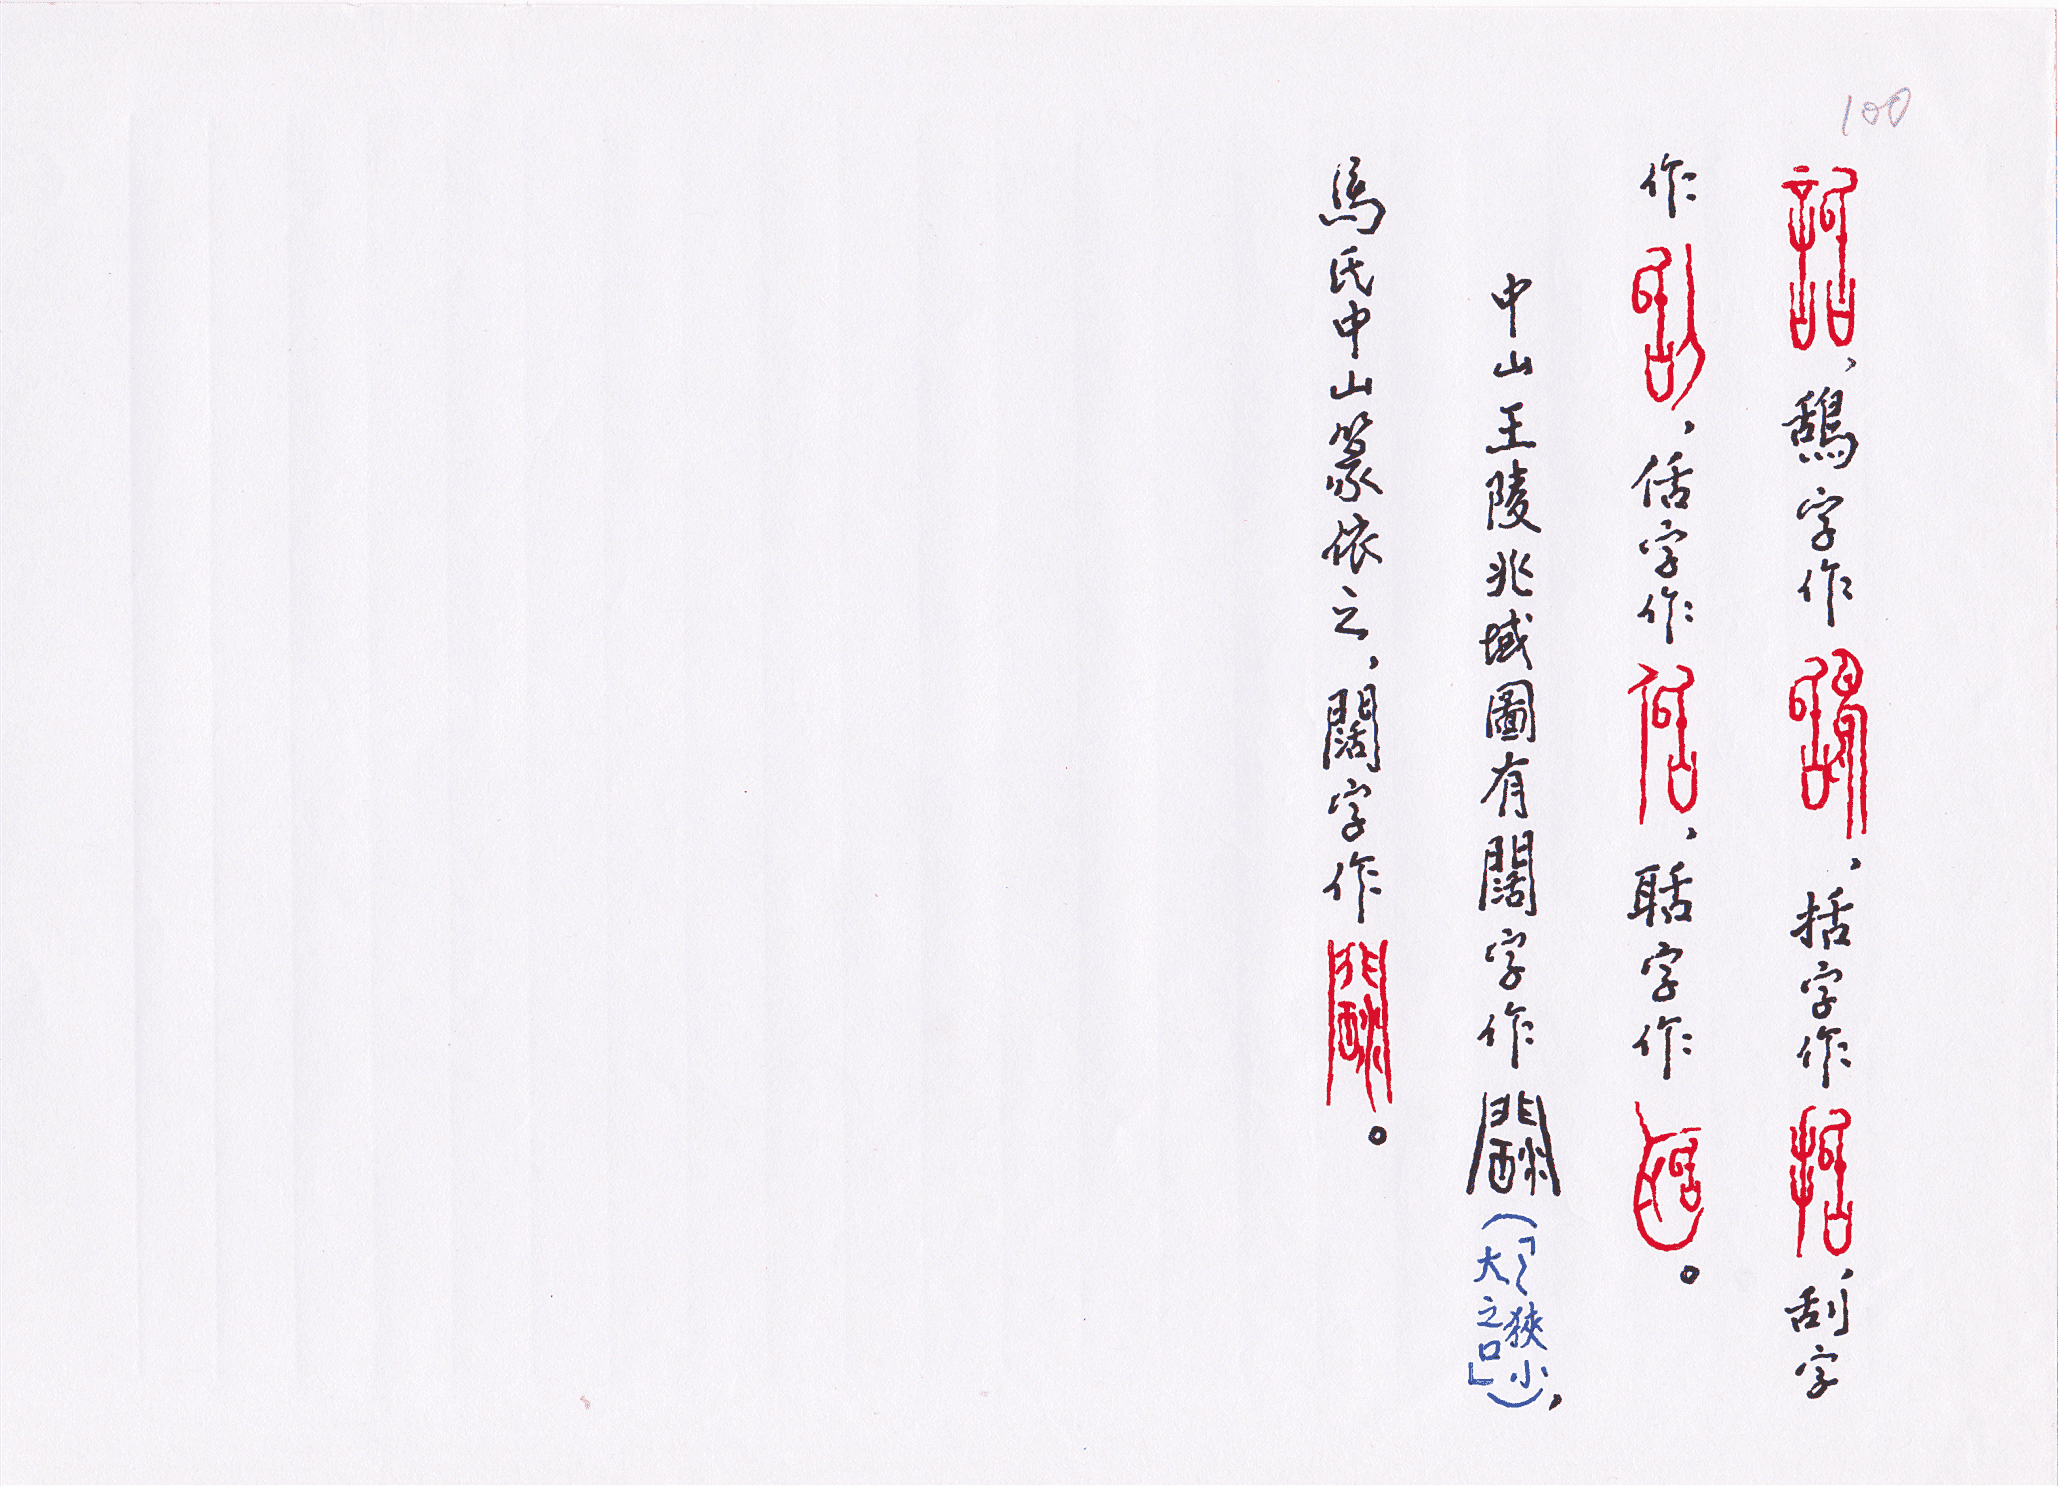 100
話，鴰字作鴰，括字作括，刮字
作刮，佸字作佸，聒字作聒。
中山王陵兆域圖有闊字作闊（「〻狹小大之口」），
馬氏中山篆依之，闊字作闊。